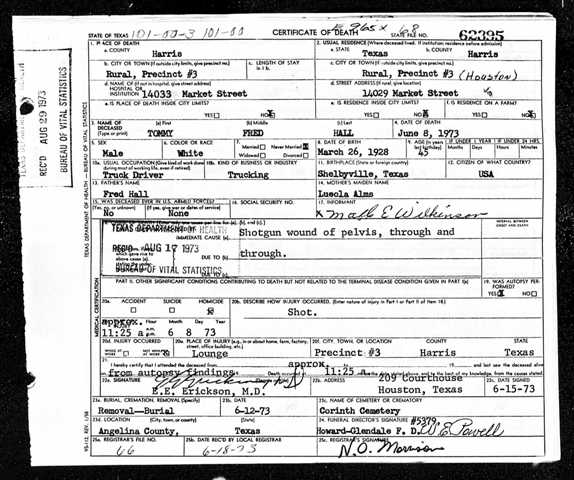 STATE OF TEXAS 101-00-3 101-00 CERTIFICATE OF DEATH STATE FILE NO. 62395
1. PLACE OF DEATH
a. COUNTY Harris
2. USUAL RESIDENCE (Where deceased lived. If institution: residence before admission)
a. STATE Texas b. COUNTY Harris
b. CITY OR TOWN (If outside city limits, give precinct no.) Rural, Precinct #3
c. LENGTH OF STAY in 1 b.
c. CITY OR TOWN (If outside city limits, give precinct no.) Rural, Precinct #3 (Houston)
d. NAME OF (If not in hospital, give street address) HOSPITAL OR INSTITUTION 14033 Market Street
d. STREET ADDRESS (If rural, give location) 14029 Market Street
e. IS PLACE OF DEATH INSIDE CITY LIMITS? YES NO X
e. IS RESIDENCE INSIDE CITY LIMITS? YES NO X
f. IS RESIDENCE ON A FARM? YES NO X
3. NAME OF DECEASED (Type or print) (a) First TOMMY (b) Middle FRED (c) Last HALL
4. DATE OF DEATH June 8, 1973
5. SEX Male
6. COLOR OR RACE White
7. Married Never Married X Widowed Divorced
8. DATE OF BIRTH March 26, 1928
9. AGE (In years last birthday) 45
IF UNDER 1 YEAR Months Days
IF UNDER 24 HRS. Hours Minutes
10a. USUAL OCCUPATION (Give kind of work done during most of working life, even if retired) Truck Driver
10b. KIND OF BUSINESS OR INDUSTRY Trucking
11. BIRTHPLACE (State or foreign country) Shelbyville, Texas
12. CITIZEN OF WHAT COUNTRY? USA
13. FATHER'S NAME Fred Hall
14. MOTHER'S MAIDEN NAME Lueola Alms
15. WAS DECEASED EVER IN U.S. ARMED FORCES? (Yes, no, or unknown) No (If yes, give war or dates of service) None
16. SOCIAL SECURITY NO.
17. INFORMANT
TEXAS DEPARTMENT OF HEALTH
REC'D AUG 17 1973
BUREAU OF VITAL STATISTICS
INTERVAL BETWEEN ONSET AND DEATH
IMMEDIATE CAUSE (a) Shotgun wound of pelvis, through and
DUE TO (b) through.
DUE TO (c)
PART II. OTHER SIGNIFICANT CONDITIONS CONTRIBUTING TO DEATH BUT NOT RELATED TO THE TERMINAL DISEASE CONDITION GIVEN IN PART I(a)
19. WAS AUTOPSY PERFORMED? YES X NO
20a. ACCIDENT SUICIDE HOMICIDE X
20b. DESCRIBE HOW INJURY OCCURRED. (Enter nature of injury in Part I or Part II of item 18.)
Shot.
approx. Hour Month Day Year
11:25 a.m. 6 8 73
20d. INJURY OCCURRED
20e. PLACE OF INJURY (e.g., in or about home, farm, factory, street, office building, etc.) Lounge
20f. CITY, TOWN, OR LOCATION Precinct #3 COUNTY Harris STATE Texas
21. I hereby certify that I attended the deceased from autopsy findings. Death occurred at approx. 11:25 a
22a. SIGNATURE E.E. Erickson, M.D.
22b. ADDRESS 209 Courthouse Houston, Texas
22c. DATE SIGNED 6-15-73
23a. BURIAL, CREMATION, REMOVAL (Specify) Removal-Burial
23b. DATE 6-12-73
23c. NAME OF CEMETERY OR CREMATORY Corinth Cemetery
23d. LOCATION (City, town, or county) (State) Angelina County, Texas
24. FUNERAL DIRECTOR'S SIGNATURE #5379 Howard-Glendale F. D. W E Powell
25a. REGISTRAR'S FILE NO. 66
25b. DATE REC'D BY LOCAL REGISTRAR 6-18-73
25c. REGISTRAR'S SIGNATURE N.O. Morrison
REC'D AUG 29 1973
BUREAU OF VITAL STATISTICS
MEDICAL CERTIFICATION